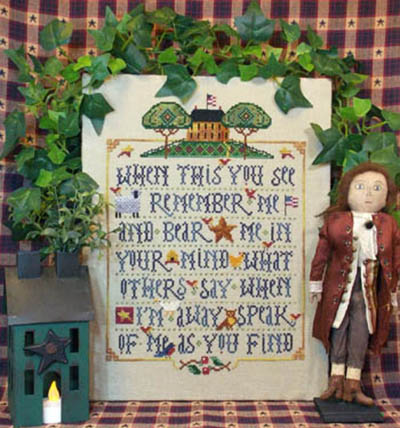 WHEN THIS YOU SEE
REMEMBER ME
AND BEAR ME IN
YOUR MIND WHAT
OTHERS SAY WHEN
I'M AWAY SPEAK
OF ME AS YOU FIND